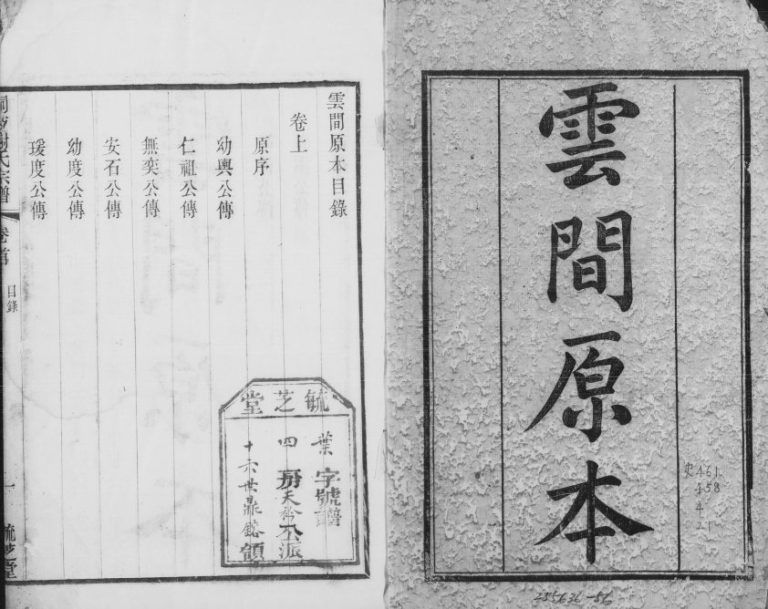 雲間原本
史461
458
4
1
255636-56
雲間原本目錄
卷上
原序
幼輿公傳
仁祖公傳
無奕公傳
安石公傳
幼度公傳
瑗度公傳
毓芝堂
葉字號譜
四房天公派
十六世鼎領
謝氏宗譜
卷首
目錄
一
毓芝堂